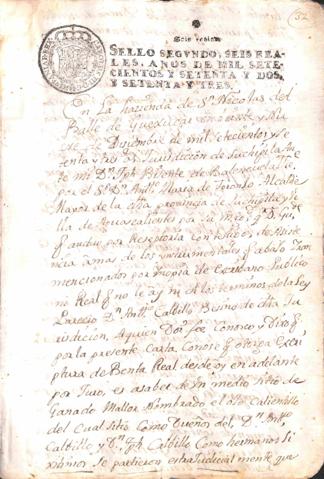 52
Seis reales
SELLO SEGVNDO, SEIS REA-
LES, AÑOS DE MIL SETE-
CIENTOS Y SETENTA Y DOS,
Y SETENTA Y TRES.
En La Hazienda de Sn. Nicolas del
Balle de en beinte y
de Disiembre de mil setecientos y se
tenta y tres en Jurisdiccion de Juchipila An
te mi Dn. Jph Bisente de
por el Sr. Dn. Anto. de Alcalde
Mayor de la dha provincia de Juchipila y Vi
lla de Aguascalientes por su Mgd. q D. Gue.
q autuo por Reseptoria con testigos de Asiste
ncia a mas de los instrumentales q abajo iran
mencionados por inopia de Escribano Publico
no Real q no le ay en el termino de la Ley
Parecio Dn. Anto. Calbillo Besino de dha Ju
risdicion, Aquien Doi fee Conosco y Dixo q
por la presente Carta, Conose q otorga Escri
ptura de Benta Real desde oy en adelante
por Juro, es asaber de Un medio sitio de
Ganado Mallor Nombrado el
del Cual sitio Como Dueños del, Dn. Anto.
Calbillo y Dn. Jph Calbillo Como hermanos
se partieron estrajudicial mente que